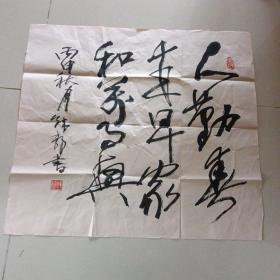 人勤春
来早家
和万事兴
丙申秋月
书